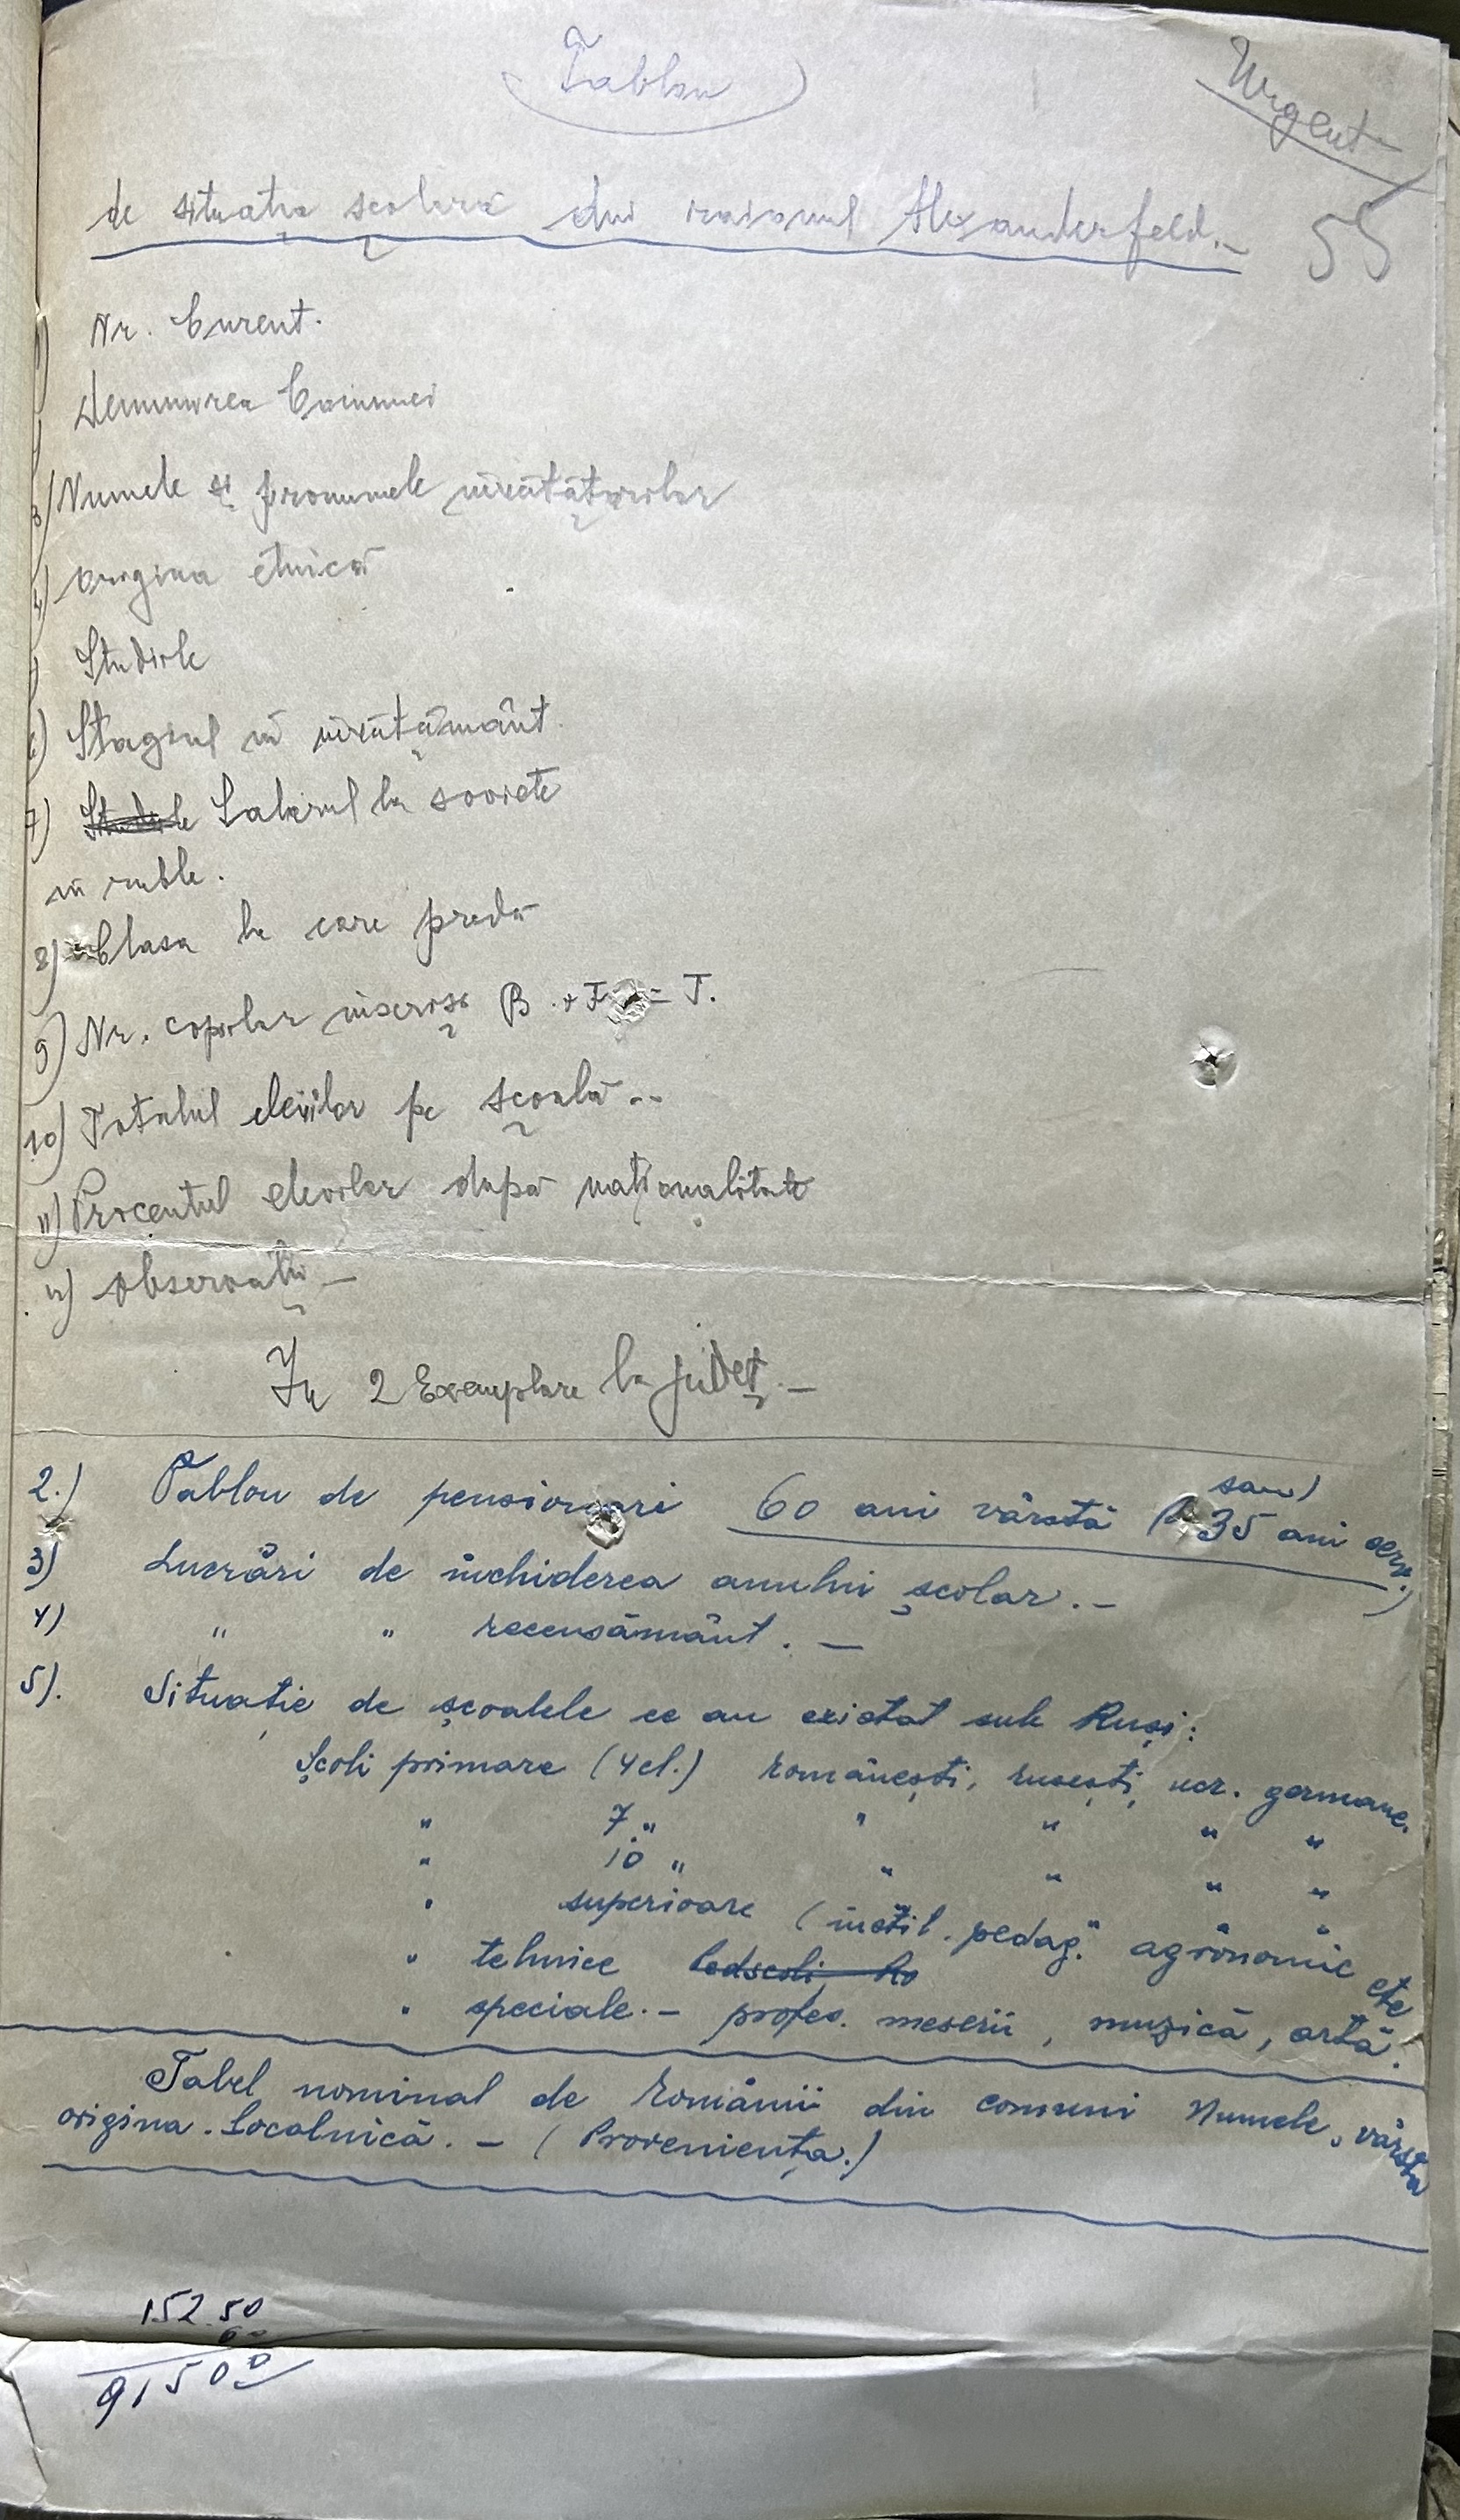 Tablou
Urgent
de situația școlară din raionul Alexanderfeld.-
55
Nr. Curent.
Denumirea Comunei
3) Numele și pronumele învățătorilor
4) Origina etnică
Studiile
6) Stagiul în învățământ
7) Studiile Salariul la soviete
în ruble.
8) Clasa la care predă
9) Nr. copiilor înscriși B + F = T.
10) Totalul elevilor pe școală --
11) Procentul elevilor după naționalitate
12) Observații -
In 2 Exemplare la județ. -
2.) Tablou de pensionari 60 ani vârstă (sau 35 ani serv.)
3) Lucrări de închiderea anului școlar. -
4) " " recensământ. -
5). Situație de școalele ce au existat sub Ruși:
Școli primare (4 cl.) românești, rusești, ucr. germane.
" 7 " " " " "
" 10 " " " " "
" superioare (instit. pedag. agronomic etc
" tehnice
" speciale. - profes. meserii, muzică, artă.
Tabel nominal de românii din comuni Numele, vârsta
origina. Localnică. - (Proveniența.)
152.50
60
91500